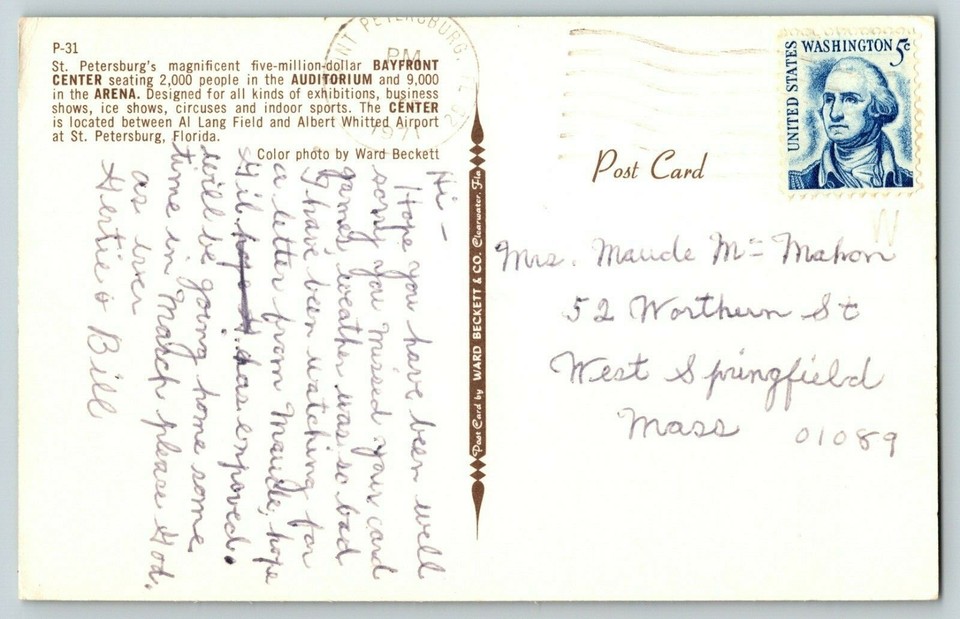 P-31
St. Petersburg's magnificent five-million-dollar BAYFRONT
CENTER seating 2,000 people in the AUDITORIUM and 9,000
in the ARENA. Designed for all kinds of exhibitions, business
shows, ice shows, circuses and indoor sports. The CENTER
is located between Al Lang Field and Albert Whitted Airport
at St. Petersburg, Florida.
Color photo by Ward Beckett
Hi -
Hope you have been well
sorry you missed your card
games, weather was so bad
I have been watching for
a letter from Maude, hope
Gil has enproved.
will be going home some
time in March please God.
as ever
Gertie & Bill
Post Card by WARD BECKETT & CO. Clearwater, Fla
PETERSBURG,
PM
1971
UNITED STATES
WASHINGTON 5c
Post Card
Mrs. Maude Mc Mahon
52 Worthern St
West Springfield
Mass 01089